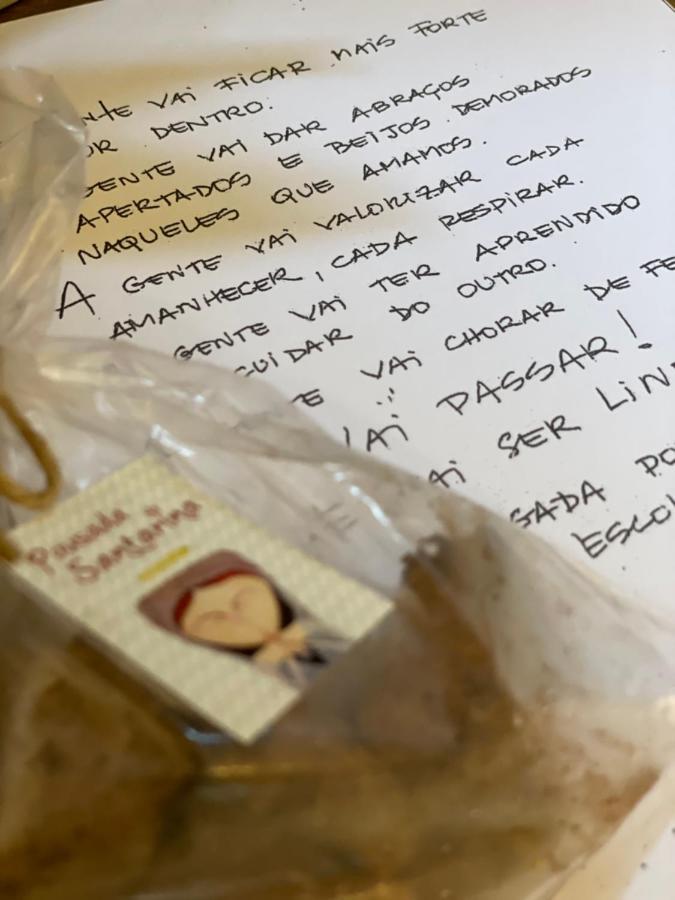 NTE VAI FICAR MAIS FORTE
OR DENTRO.
GENTE VAI DAR ABRAÇOS
APERTADOS E BEIJOS DEMORADOS
NAQUELES QUE AMAMOS.
A GENTE VAI VALORIZAR CADA
AMANHECER, CADA RESPIRAR.
GENTE VAI TER APRENDIDO
CUIDAR DO OUTRO.
E VAI CHORAR DE FE
VAI PASSAR!
AI SER LIN
GADA PO
ESCOL
Pousada
Santarina